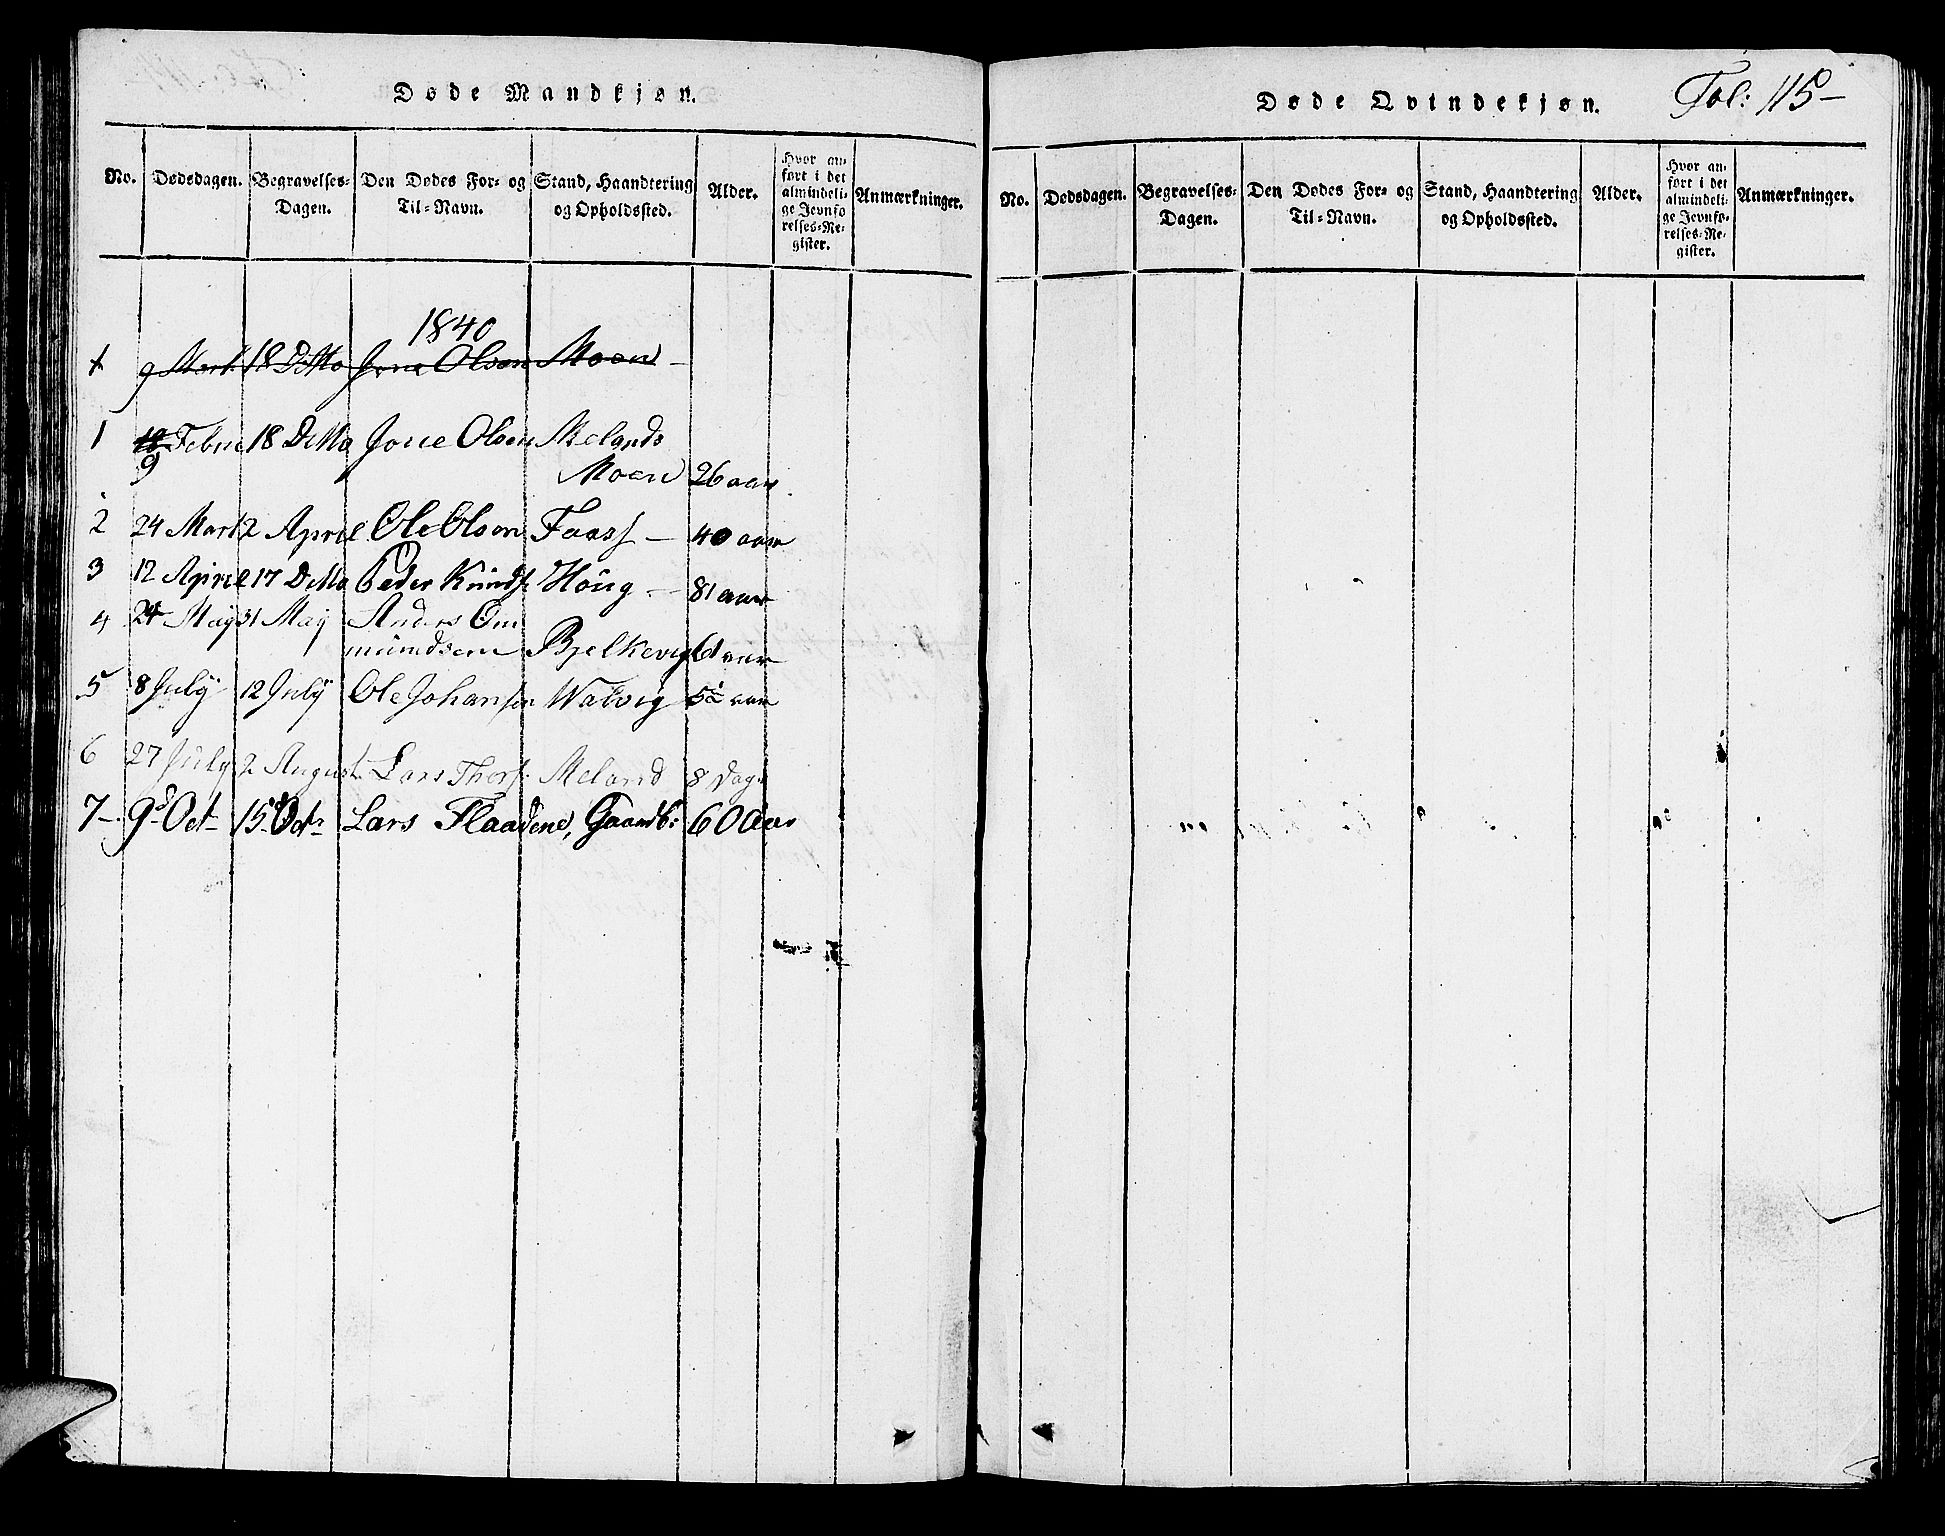 Døde Mandkjøn.
No. Dødsdagen. Begravelses-Dagen. Den Dødes For- og Til-Navn. Stand, Haandtering og Opholdssted. Alder. Hvor anført i det almindelige Jevnførelses-Register. Anmærkninger.
1840
1 9 Mart. 18 Ditto Jone Olsen Moen
1 18 Febru 18 Ditto Jone Olsen Melands
9 Moen 26 aar
2 24 Mart 2 April Ole Olsen Faass — 40 aar
3 12 April 17 Ditto Peder Knuds Houg — 81 aar
4 24 May 31 May Anders Om
mundsen Bjelkevig 61 aar
5 8 July 12 July Ole Johansen Walvig 5½ aar
6 27 July 2 August Lars Thors Meland 8 Dage
7 — 9d Oct 15 Octr Lars Flaadene, Gaardb: 60 Aar
Døde Qvindekjøn.
Fol: 115 —
No. Dødsdagen. Begravelses-Dagen. Den Dødes For- og Til-Navn. Stand, Haandtering og Opholdssted. Alder. Hvor anført i det almindelige Jevnførelses-Register. Anmærkninger.